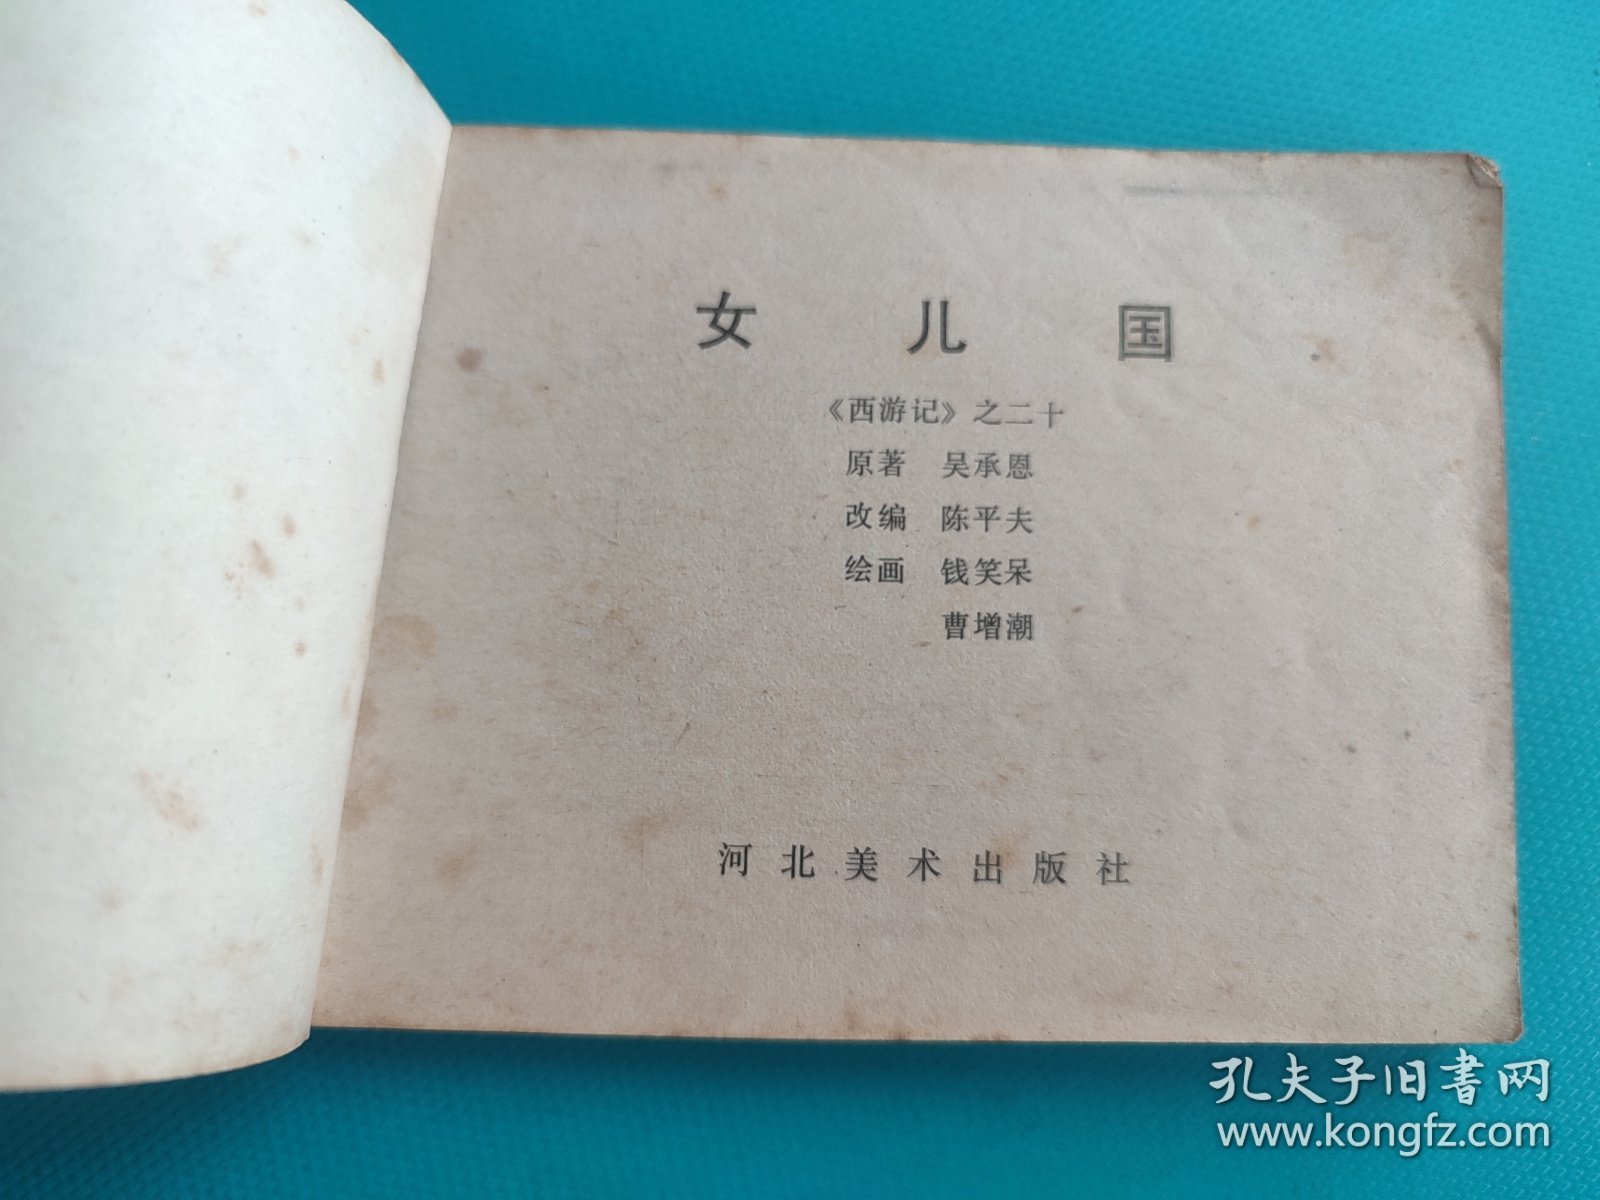 女儿国
《西游记》之二十
原著 吴承恩
改编 陈平夫
绘画 钱笑呆
曹增潮
河北美术出版社
孔夫子旧书网
www.kongfz.com